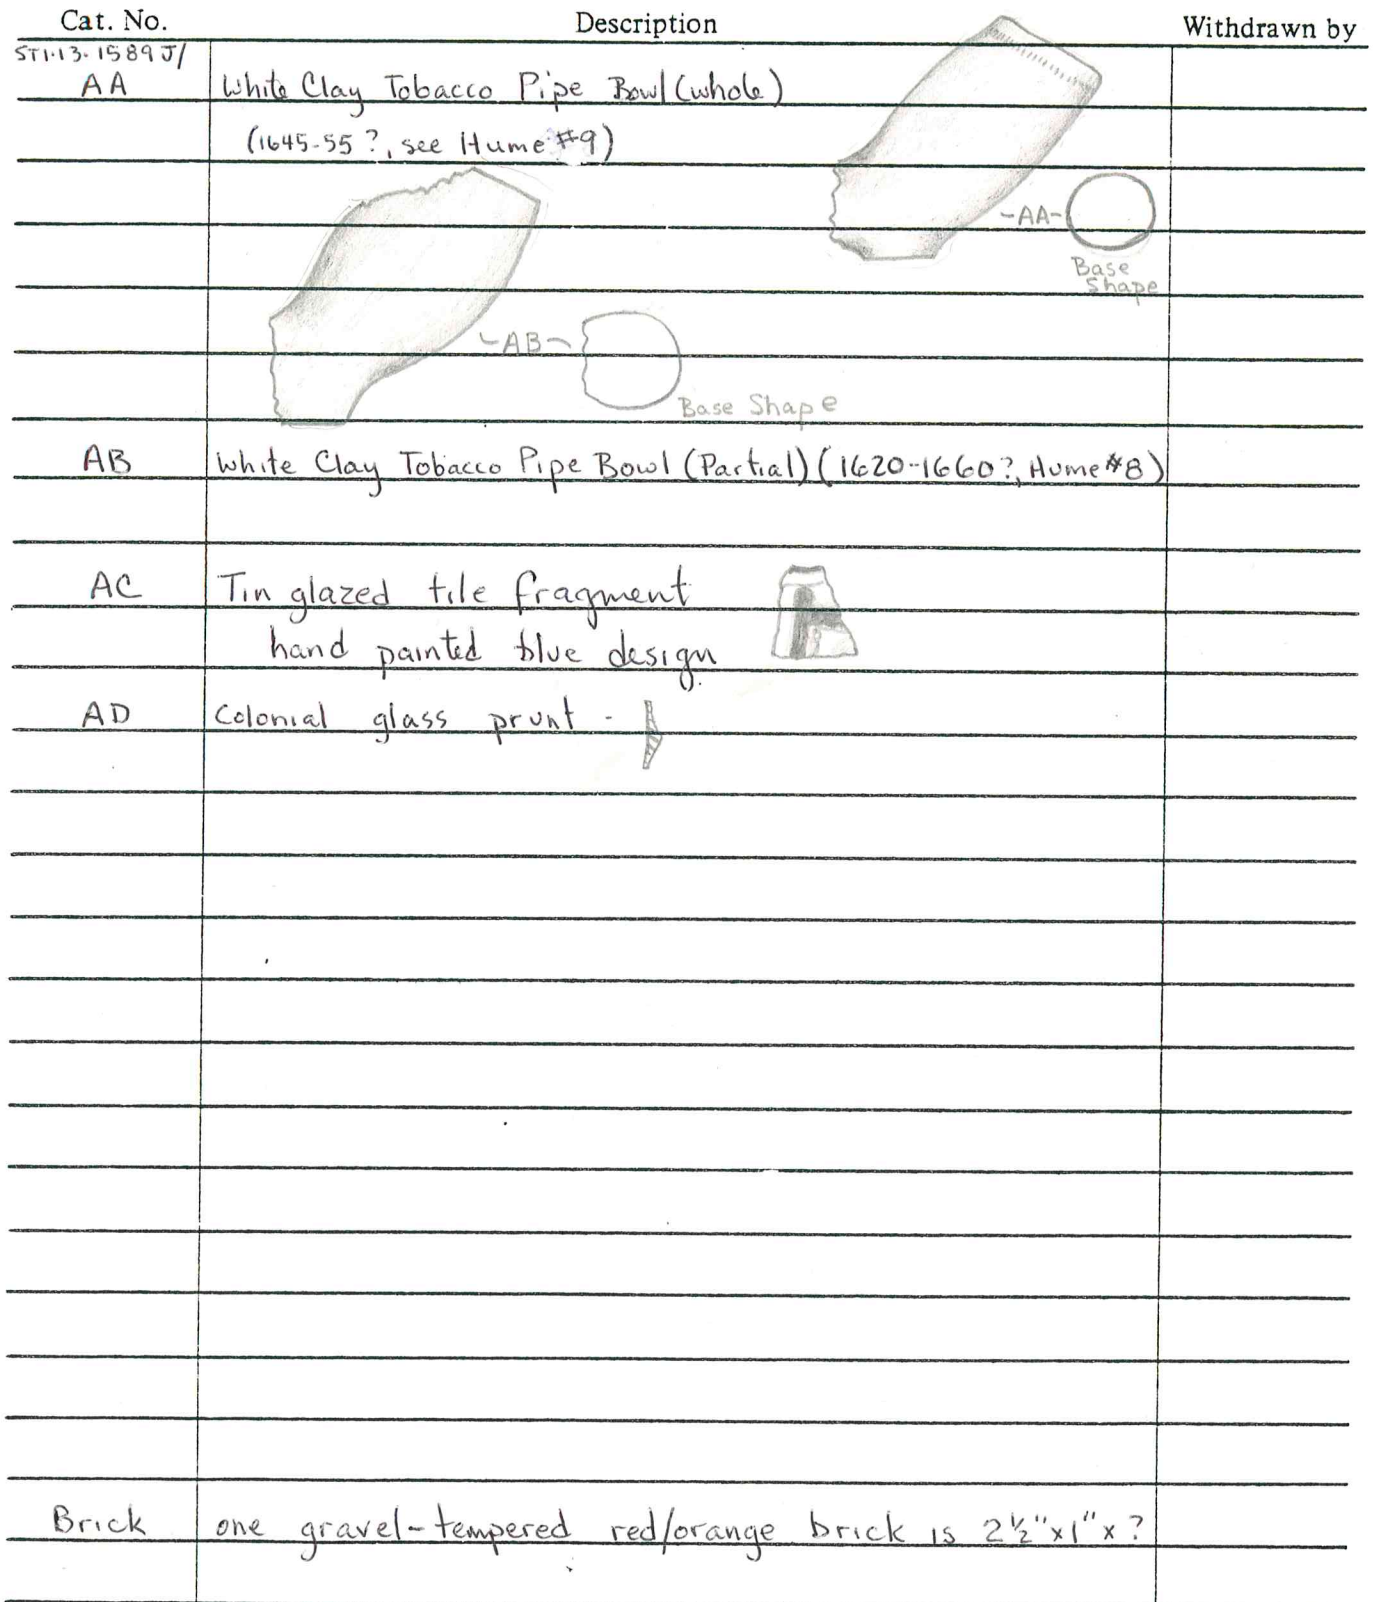 Cat. No. Description Withdrawn by
ST1-13-1589J/
AA White Clay Tobacco Pipe Bowl (whole)
(1645-55?, see Hume #9)
-AA-
Base
Shape
-AB-
Base Shape
AB White Clay Tobacco Pipe Bowl (Partial) (1620-1660?, Hume #8)
AC Tin glazed tile fragment
hand painted blue design
AD Colonial glass prunt -
Brick one gravel-tempered red/orange brick is 2½"x1"x?